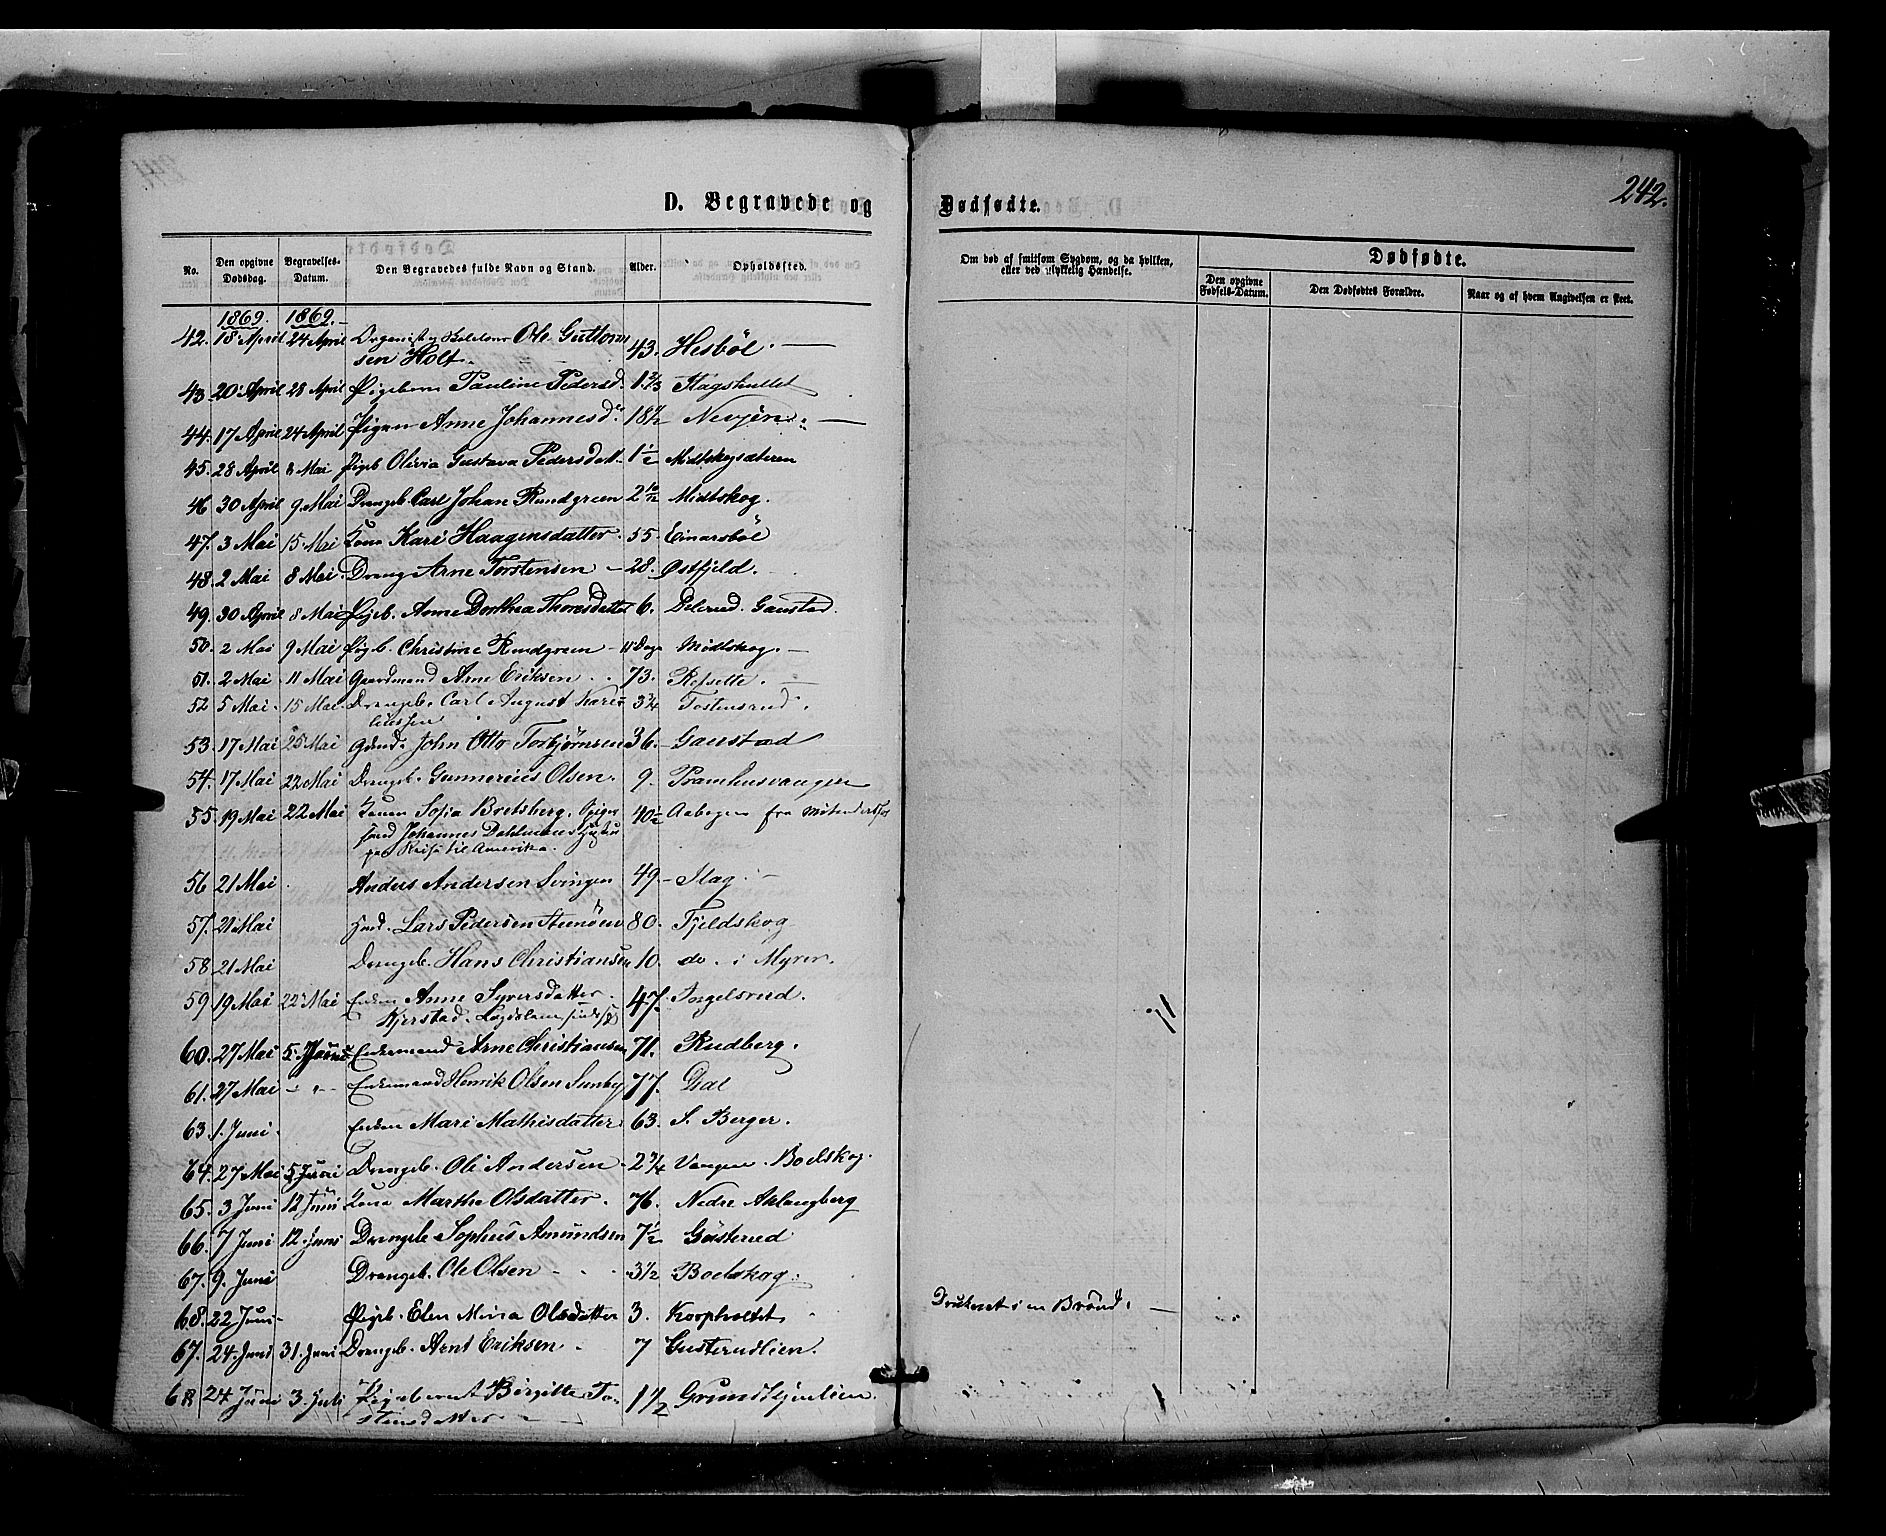 242.
D. Begravede og Dødfødte.
No. Den opgivne Dødsdag. Begravelses-Datum. Den Begravedes fulde Navn og Stand. Alder. Opholdssted.
Om død af smitsom Sygdom, og da hvilken, eller ved ulykkelig Hændelse.
Dødfødte.
Den opgivne Fødsels-Datum. Den Dødfødtes Forældre. Naar og af hvem Angivelsen er skeet.
1869. 1869.
42. 18 April 24 April Organist og Ole Guttorm
sen Holt. 43. Hesbøl.
43 20 April 28 April Pigebarn Pauline Pedersd. 1 2/3
44. 17 April 24 April Pigen Anne Johannesd. 18 1/2
45. 28 April 8 Mai Pigeb Olivia Gustava Pedersdatt. 1 1/2 Midtskogsæteren
46 30 April 9 Mai Drengeb. Carl Johan Rundgreen 2 10/12 Midtskog.
47. 3 Mai 15 Mai Kone Kari Haagensdatter. 55. Einarsbøl
48. 2 Mai 8 Mai. Dreng Arne Torstensen 28. Østfjeld.
49. 30 April 8 Mai Pigeb. Anne Dorthea Thoresdatter 6. Gaustad.
50. 2 Mai 9 Mai Pigb. Christine Rundgreen 11 Dage Midtskog.
51. 2 Mai 11 Mai Gaardmand Arne Eriksen 73.
52 5 Mai. 15 Mai. Drengeb. Carl August Kare-
liussen 3 3/4 Tostensrud.
53. 17 Mai 25 Mai John Otto Torbjørnsen 36. Gaustad
54. 17 Mai 22 Mai Drengeb. Gunnerius Olsen. 9. Pramhusvangen
55. 19 Mai 22 Mai Konen Sofia 40 1/2 Aabogen fra
Johannes Dahlman
paa Reise til Amerika.
56 21 Mai Anders Andersen Svingen 49 Slag.
57. 21 Mai Lars Pedersen 80. Fjeldskog
58. 21 Mai Drengeb. Hans Christiansen 10. do. i Myren.
59 19 Mai 22 Mai Enken Anne Syversdatter. 47. Ingelsrud.
Kjerstad.
60. 27 Mai 5. Juni Enkemand Arne Christiansen 71. Rudberg.
61. 27 Mai Enkemand Henrik Olsen Sunby 77. Dal
63 1. Juni. Enken Mari Mathisdatter 63. S. Berger.
64. 27 Mai 5 Juni Drengeb. Ole Andersen 2 3/4 Vangen. Boelskog.
65. 3 Juni 12 Juni Kone Marthe Olsdatter. 76. Nedre Aklangberg
66. 7 Juni 12. Juni Drengeb Sophus Amundsen 7 1/2 Gusterud
67. 9. Juni Drengeb. Ole Olsen 3 1/2 Boelskog.
68. 22 Juni Pigeb. Elen Mina Olsdatter 3. Korpholtet Druknet i en Brønd.
67. 24. Juni 31. Juni Drengeb. Arnt Eriksen 7 Gusterudlien.
68 24 Juni 3. Juli Pigebarnet Birgitte To-
stensdatter 1 1/2